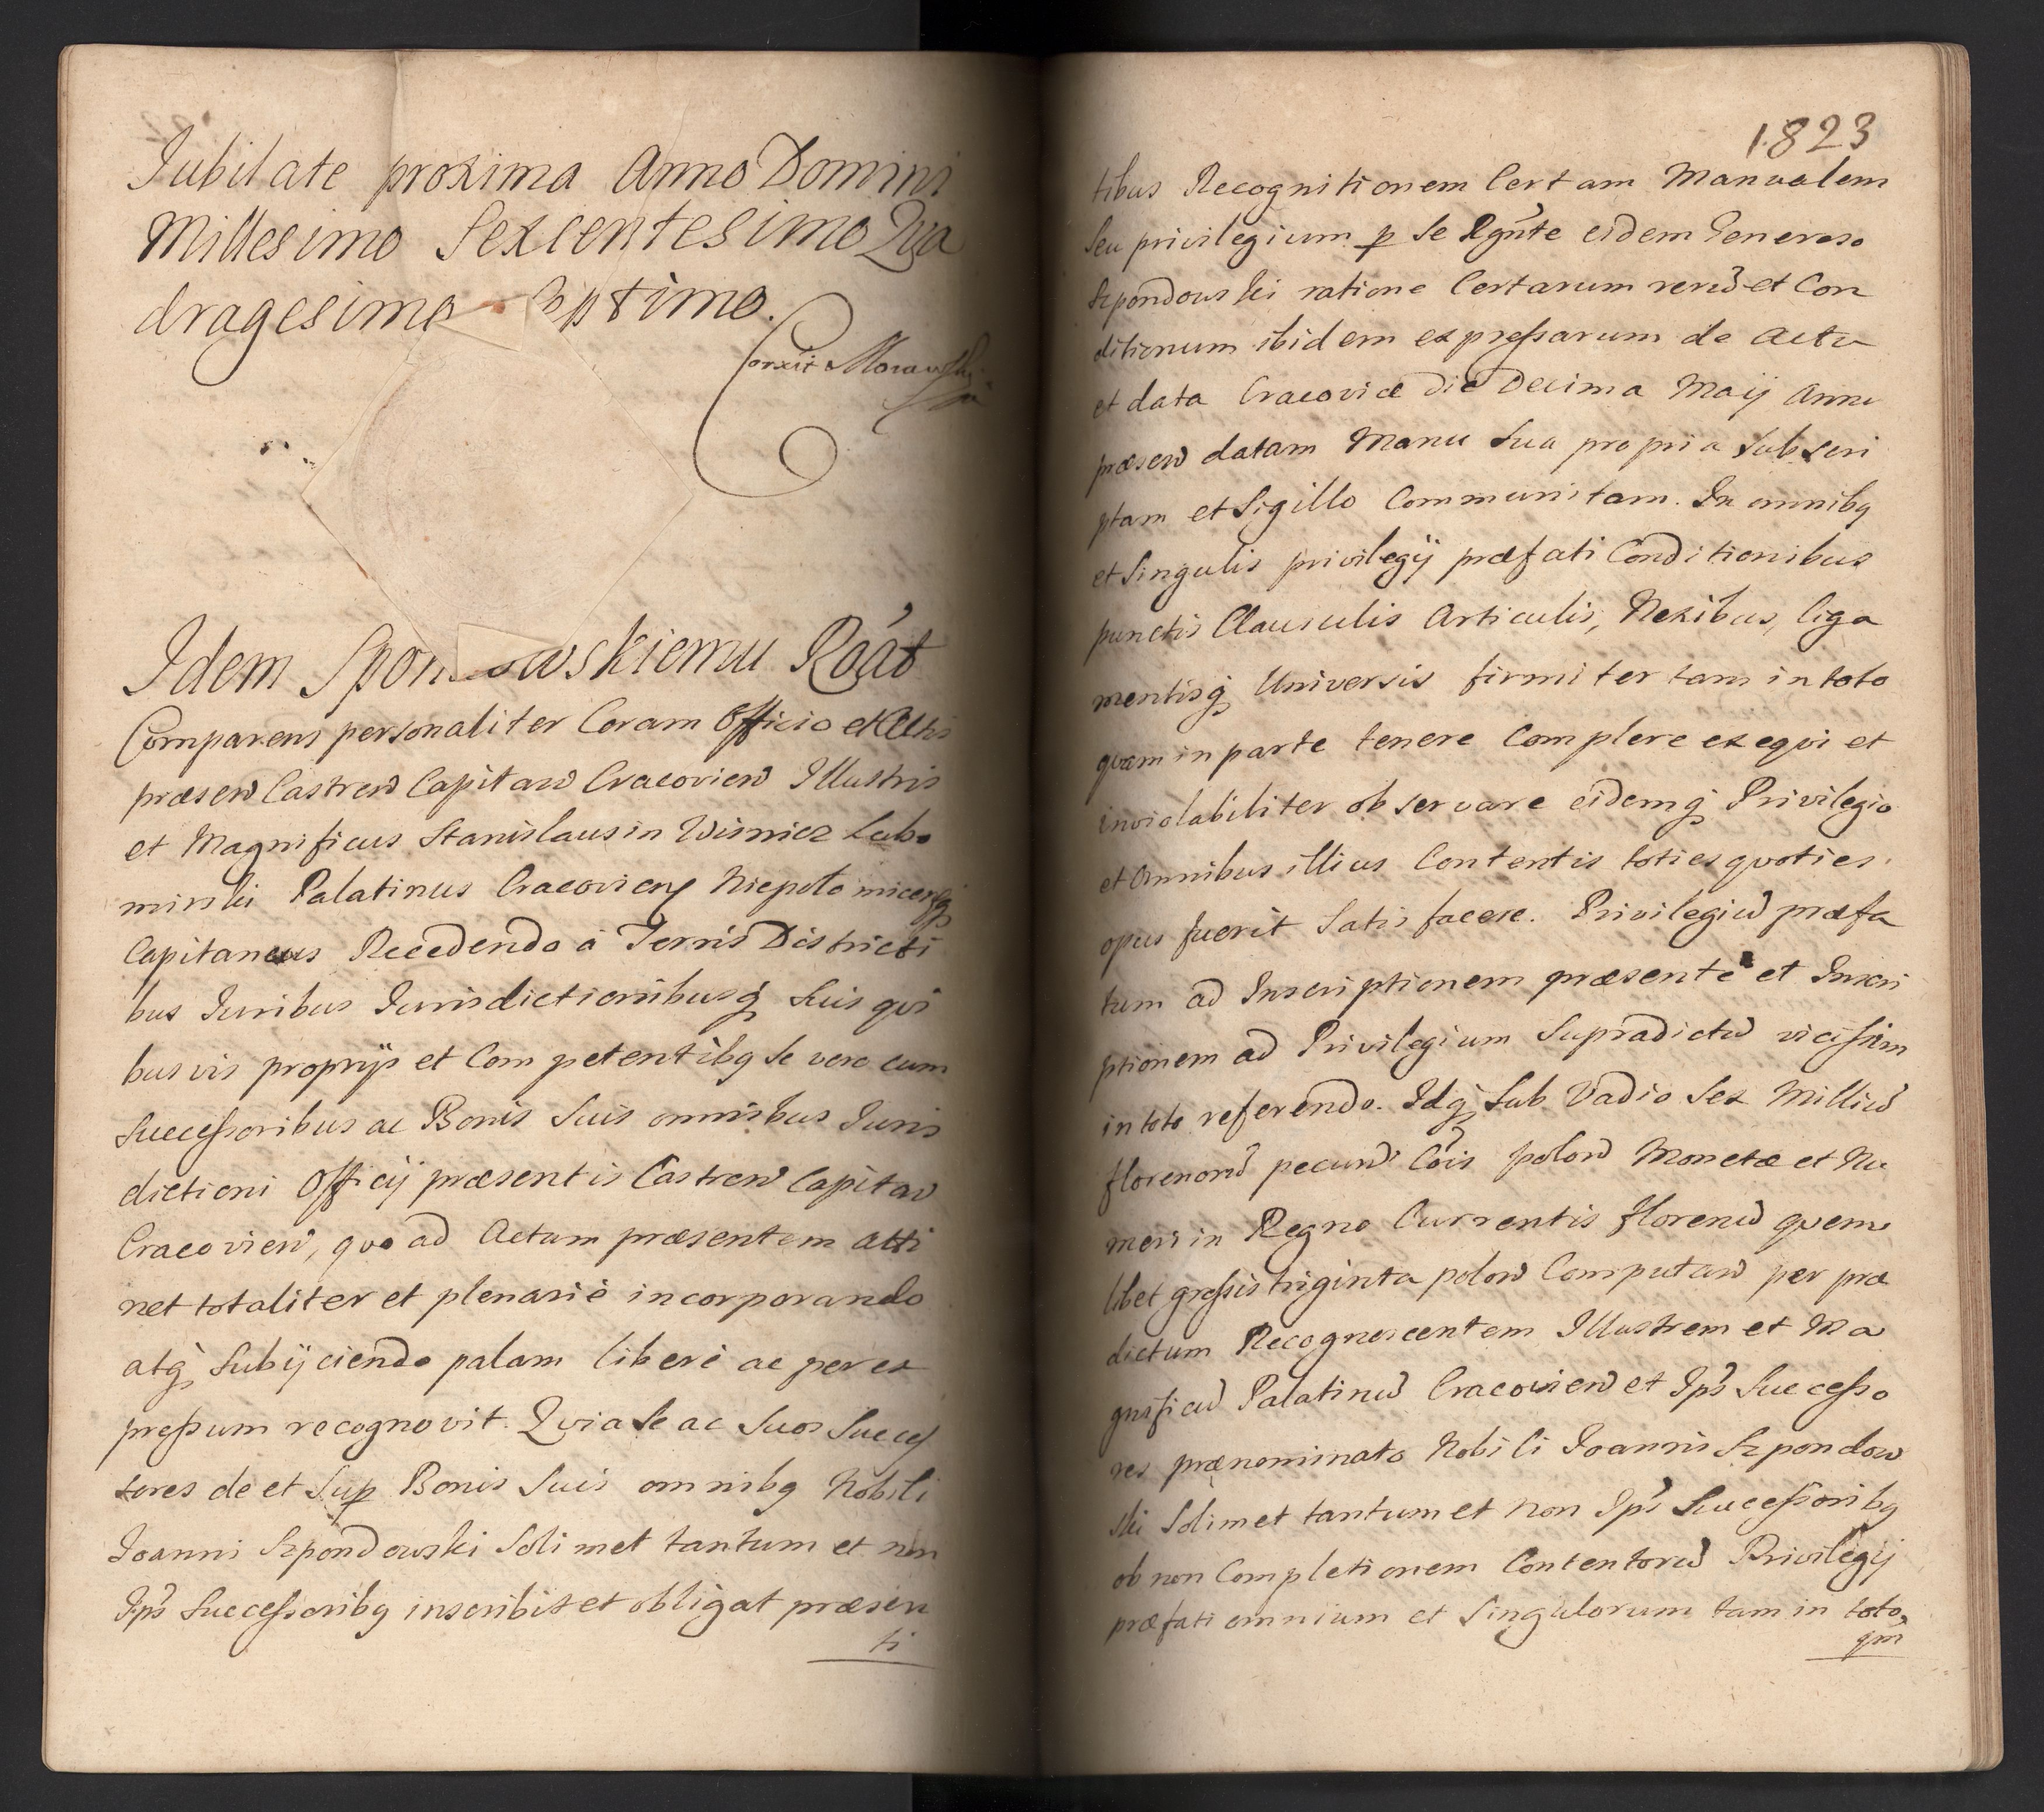 Iubilate proxima Anno Domini
Millesimo Sexcentesimo Qua
dragesimo Septimo.
Correxit Morawski
Idem Spondowskiemu Rőat
Comparens personaliter Coram Officio et Actis
præsen Castren Capitan Cracovien Illustris
et Magnificus Stanislaus in Wisnicz Lubo
mirski Palatinus Cracovien Niepolomicenq
Capitaneus Recedendo á Terris Districti
bus Iuribus Iurisdictionibusq Suis qui
bus vis proprijs et Competentibq Se vero cum
Successoribus ac Bonis Suis omnibus Iuris
dictioni Officij præsentis Castren Capitan
Cracovien, quo ad Actum præsentem atti
net totaliter et plenarié incorporando
atq Subijciendo palam liberé ac per ex
pressum recognovit. Quia Se ac Suos Succes
sores de et Sup Bonis Suis omnibq Nobili
Ioanni Szpondowski Soli met tantum et non
Ips Successoribq inscribit et obligat præsen
ti
1823
tibus Recognitionem Certam Manualem
Seu privilegium p Se Rgnte eidem Generoso
Szpondowski ratione Certarum rerum et Con
ditionum ibidem expressarum de Actu
et data Cracoviæ die Decima Maij Anni
præsen datam Manu Sua propria Subscri
ptam et Sigillo Communitam. In omnibq
et Singulis privilegij præfati Conditionibus
punctis Clausulis Articulis, Nexibus, liga
mentisq Universis firmiter tam in toto
quam in parte tenere Complere exequi et
inviolabiliter observare eidemq Privilegio
et Omnibus illius Contentis toties quoties
opus fuerit Satisfacere. Privilegium præfa
tum ad Inscriptionem præsente et Inscri
ptionem ad Privilegium Supradictum vicissim
in toto referendo. Idq Sub Vadio Sex Millium
florenorum pecun Cois polon Monetæ et Nu
meri in Regno Currentis florenum quem
libet grossis triginta polon Computan per præ
dictum Recognoscentem Illustrem et Ma
gnificum Palatinum Cracovien et Ips Successo
res prænominato Nobili Ioannis Szpondow
ski Solimet tantum et non Ips Successoribq
ob non Completionem Contentorum Privilegij
præfati omnium et Singulorum tam in toto,
qm